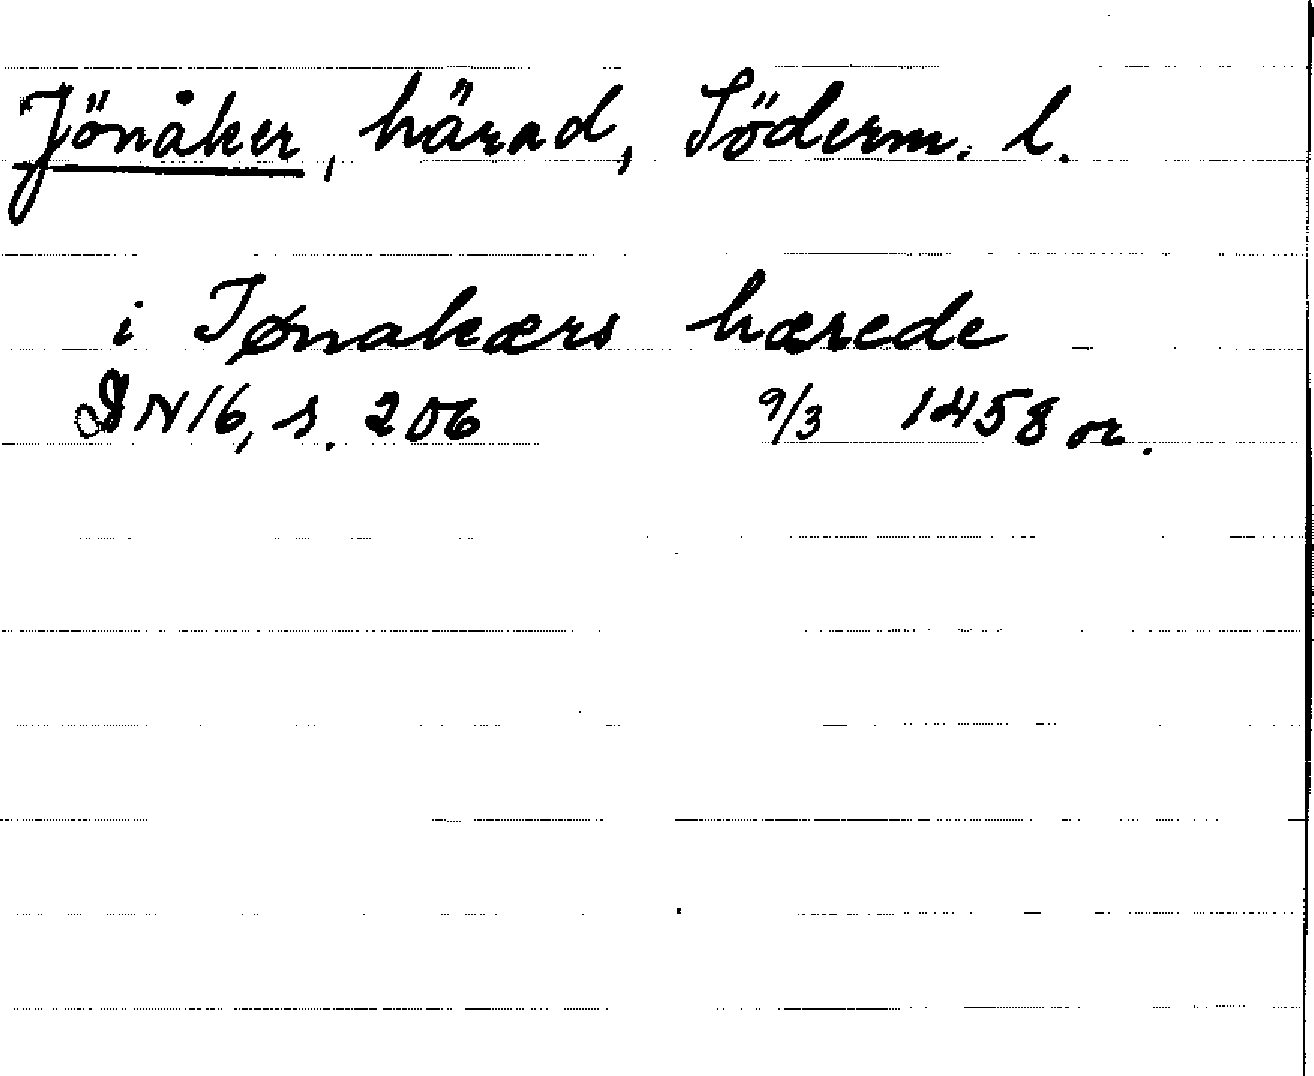 Jönåker, härad, Söderm. l.
i Iønakærs hærede
DN 16, s. 206 9/3 1458 or.